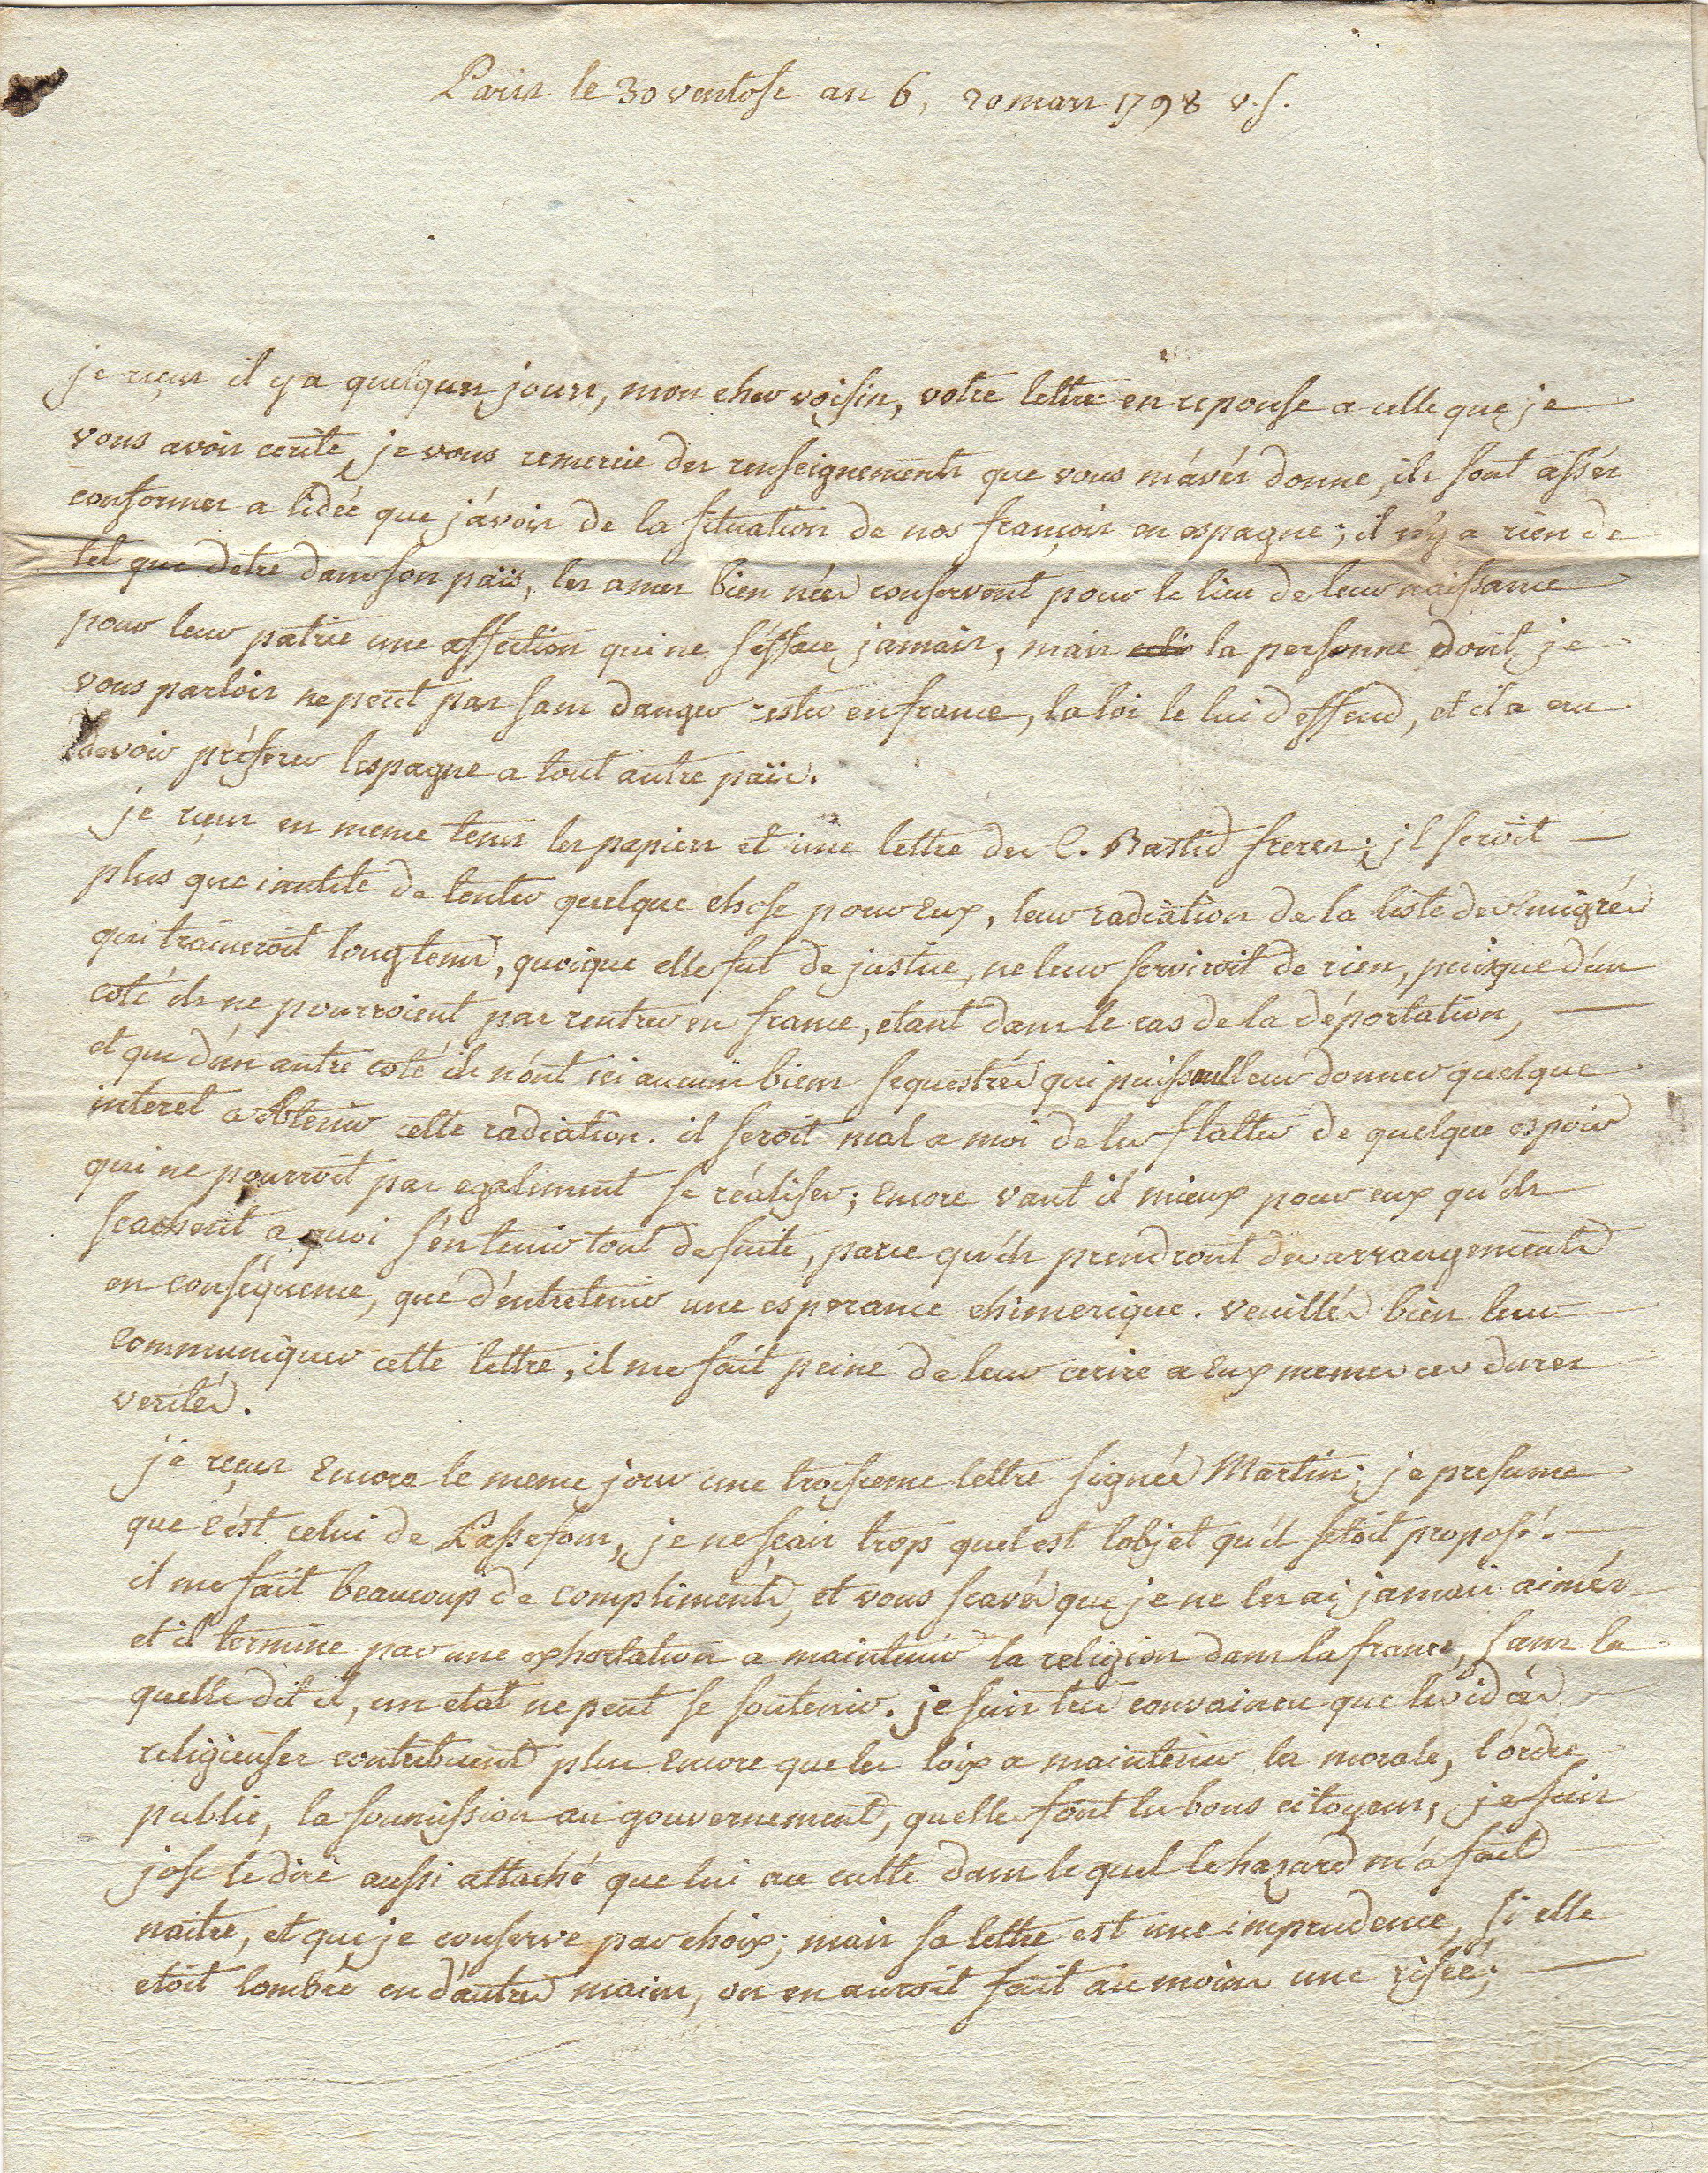 Paris le 30 ventose an 6, 20 mars 1798 v.s.
je reçus il y a quelques jours, mon cher voisin, votre lettre en reponse a celle que je
vous avois ecrite, je vous remercie des renseignements que vous m'avés donne, ils sont assés
conformes a lidée que j'avois de la situation de nos françois en espagne; il n'y a rien de
tel que detre dans son païs, les ames bien nées conservent pour le lieu de leur naissance
pour leur patrie une affection qui ne s'efface jamais, mais la personne dont je
vous parlois ne peut pas sans danger rester en france, la loi le lui deffend, et il a cru
devoir préferer lespagne a tout autre païs.
je reçus en meme tems les papiers et une lettre des C. Bastid freres; il seroit
plus que inutile de tenter quelque chose pour eux, leur radiation de la liste des emigrés
qui traineroit longtems, quoique elle fut de justice, ne leur serviroit de rien, puisque d'un
coté ils ne pourroient pas rentrer en france, etant dans le cas de la déportation,
et que d'un autre coté ils n'ont ici aucuns biens sequestrés qui puissent leur donner quelque
interet a obtenir cette radiation. il seroit mal a moi de les flatter de quelque espoir
qui ne pourroit pas egalement se réaliser; encore vaut il mieux pour eux qu'ils
scachent a quoi s'en tenir tout de suite, parce qu'ils prendront des arrangements
en conséquence, que d'entretenir une esperance chimerique. veuillés bien leur
communiquer cette lettre, il me fait peine de leur ecrire a eux memes ces dures
verités.
je reçus encore le meme jour une troisieme lettre signée Martin; je presume
que c'est celui de Lassefons, je ne sçais trop quel est lobjet qu'il setoit proposé.
il me fait beaucoup de compliments, et vous scavés que je ne les ai jamais aimés
et il termine par une exhortation a maintenir la religion dans la france, sans la
quelle dit il, un etat ne peut se soutenir. je suis tres convaincu que les idées
religieuses contribuent plus encore que les loix a maintenir la morale, l'ordre
public, la soumission au gouvernement, quelle font les bons citoyens, je suis
jose le dire aussi attaché que lui au culte dans le quel le hazard m'a fait
naitre, et que je conserve par choix; mais sa lettre est une imprudence, si elle
etoit tombée en d'autres mains, on en auroit fait au moins une risée;